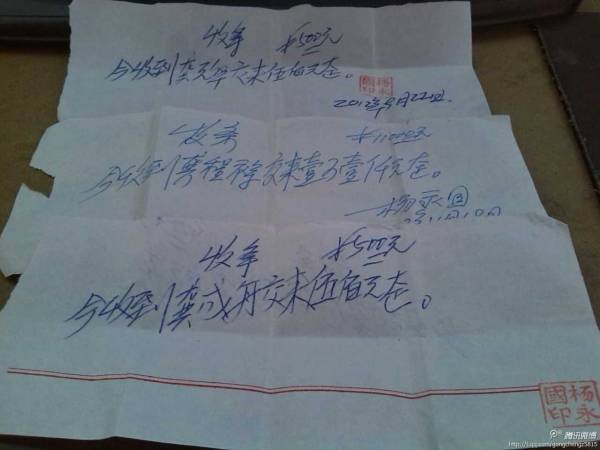 收条 ¥500元
今收到龚成年交来伍佰元在。
杨永國印
2012年9月22日.
收条 ¥11000元
今收到 程 交来壹万壹仟元在。
杨永国
11月10日
收条 ¥500元
今收到龚成舟交来伍佰元在。
杨永國印
腾讯微博
http://t.qq.com/gongchengz5815